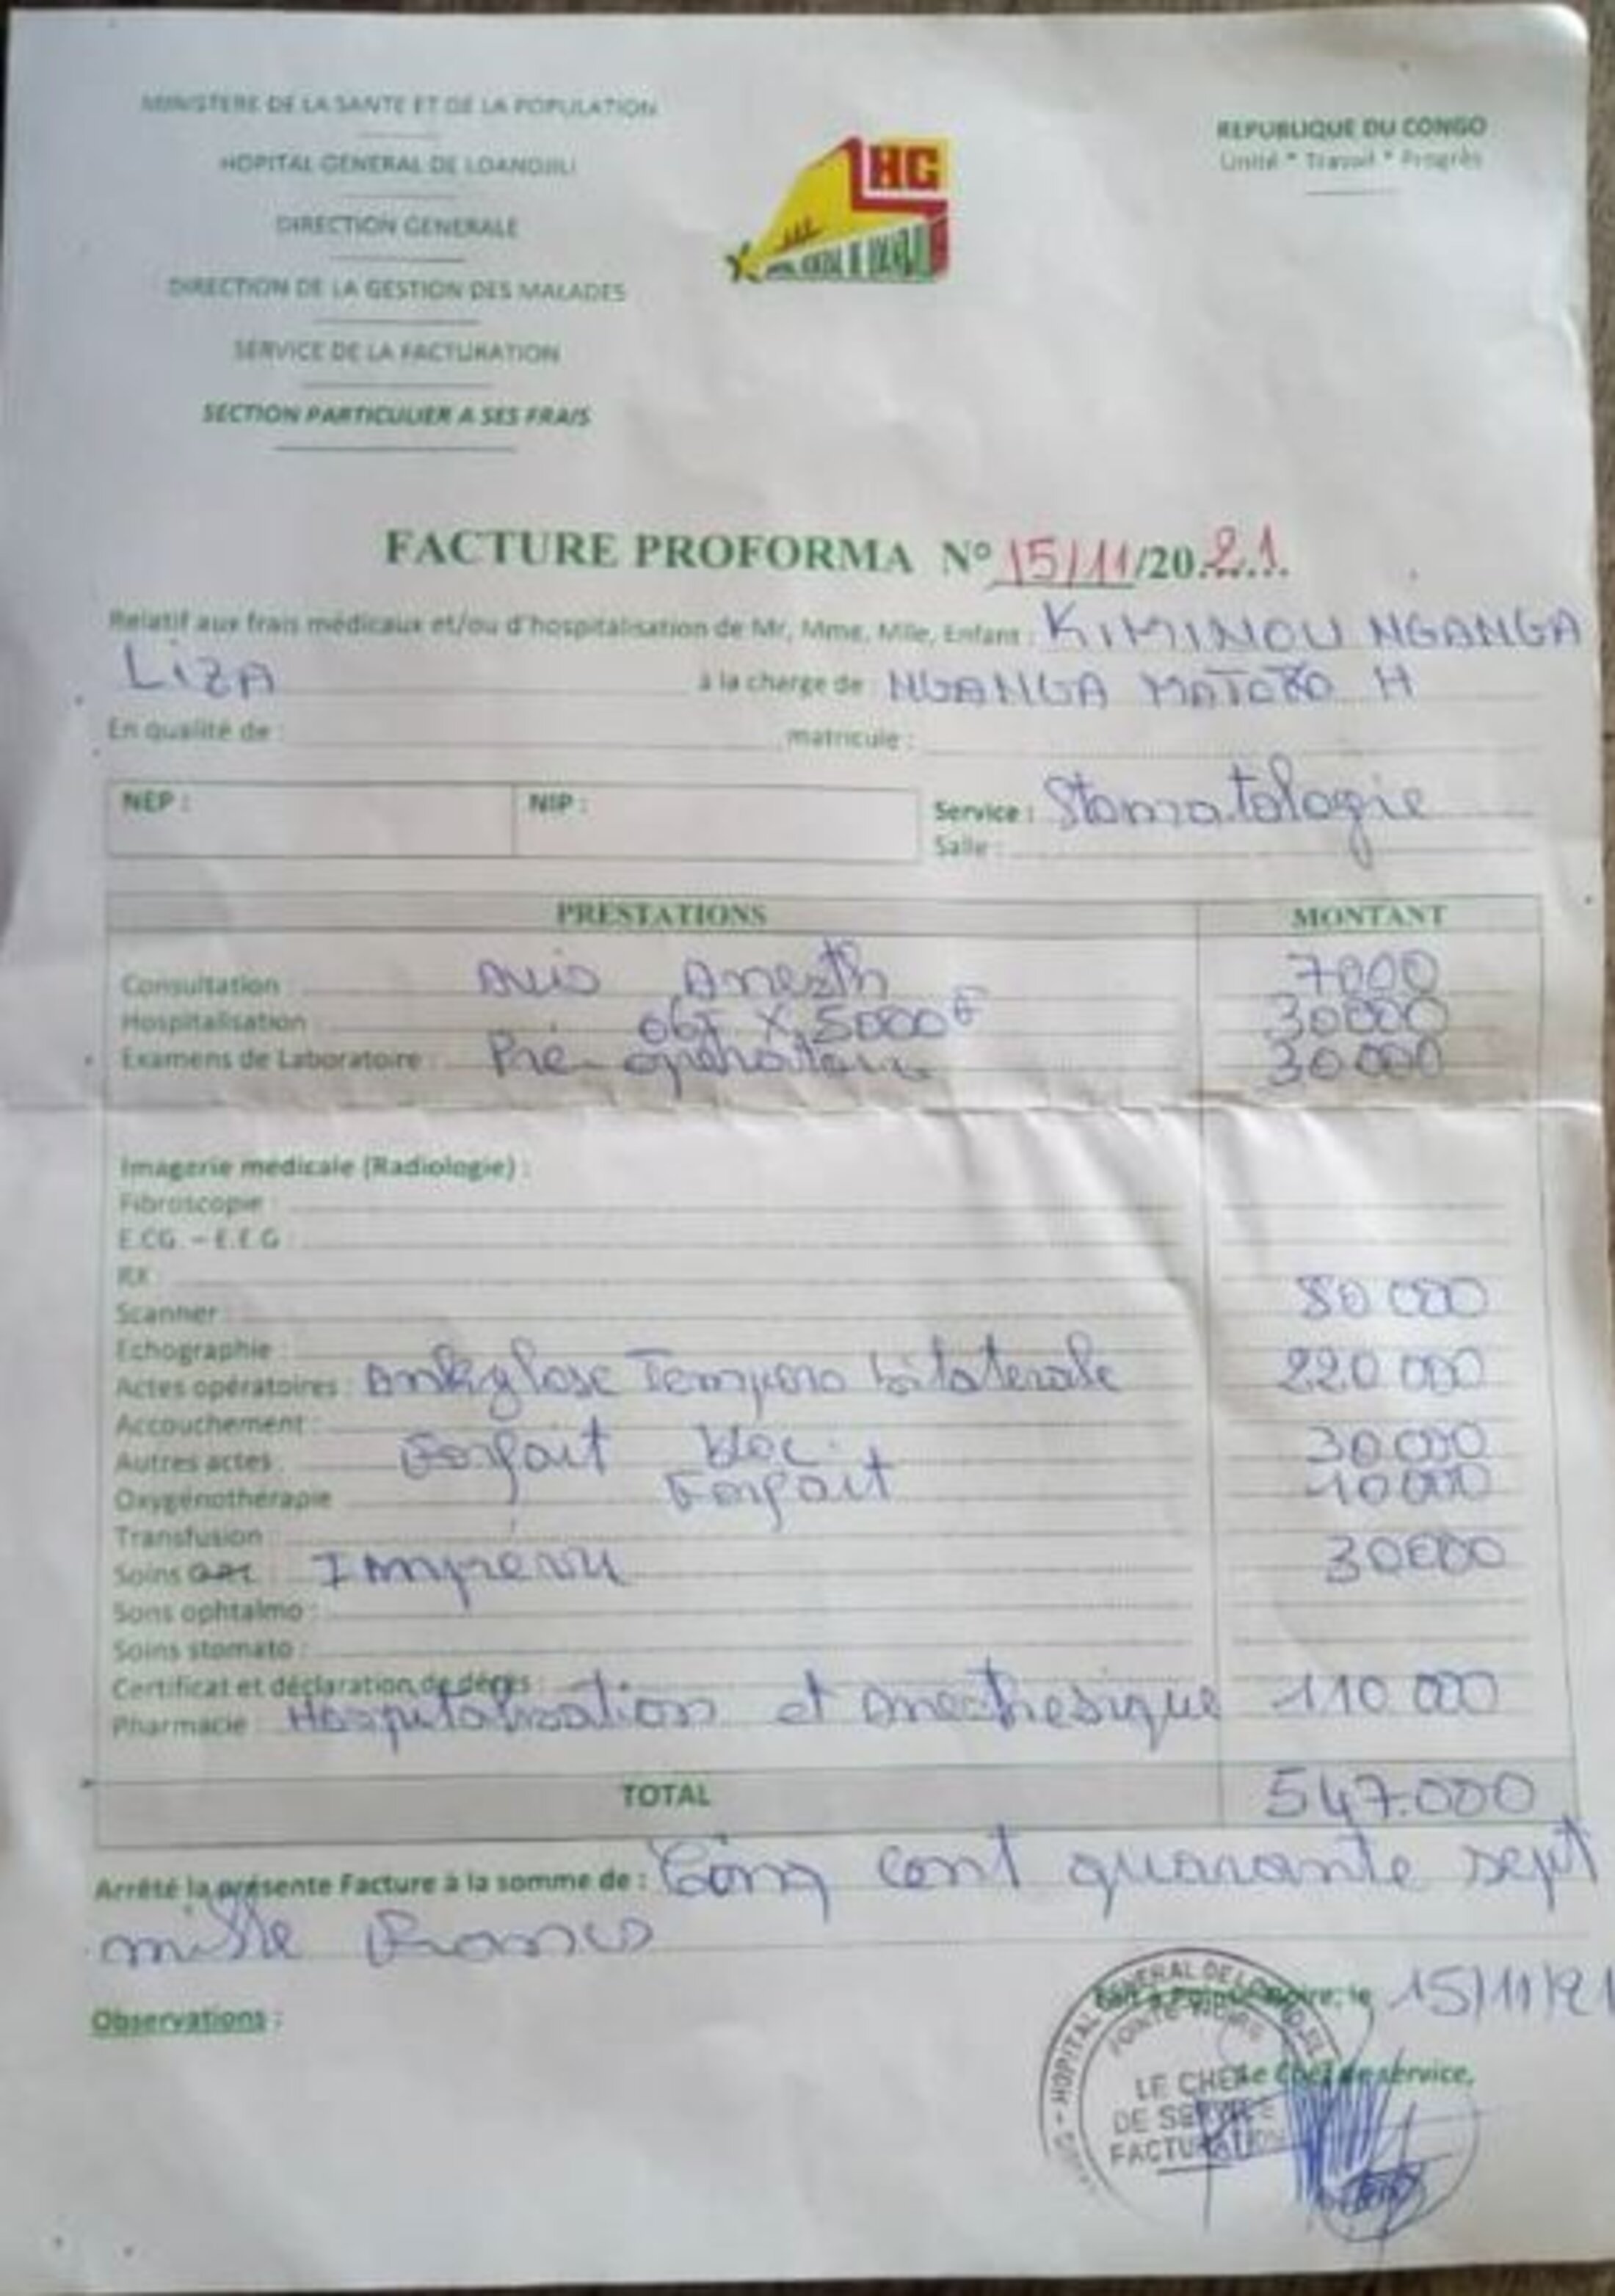 MINISTERE DE LA SANTE ET DE LA POPULATION
HOPITAL GENERAL DE LOANDJILI
DIRECTION GENERALE
DIRECTION DE LA GESTION DES MALADES
SERVICE DE LA FACTURATION
SECTION PARTICULIER A SES FRAIS
HG
REPUBLIQUE DU CONGO
Unité * Travail * Progrès
FACTURE PROFORMA N° 15/11/20.21
Relatif aux frais médicaux et/ou d'hospitalisation de Mr, Mme, Mlle, Enfant : KIMINOU NGANGA
LIZA à la charge de : NGANGA MATOKO H
En qualité de : matricule :
NEP : NIP : Service : Stomatologie
Salle :
PRESTATIONS MONTANT
Consultation Avis Anesth 7000
Hospitalisation 06J X 5000F 30000
Examens de Laboratoire : Pré-opératoire 30 000
Imagerie médicale (Radiologie) :
Fibroscopie :
E.CG. - E.E.G
RX :
Scanner : 80 000
Echographie :
Actes opératoires : Ankylose Temporo bilaterale 220 000
Accouchement :
Autres actes : Forfait bloc 30 000
Oxygénothérapie Forfait 10000
Transfusion :
Soins Imprévu 30000
Sons ophtalmo :
Soins stomato :
Certificat et déclaration de décès :
Pharmacie : Hospitalisation et Anesthesique 110 000
TOTAL 547.000
Arrêté la présente Facture à la somme de : Cinq cent quarante sept
mille Francs
Observations :
Fait à Pointe-Noire, le 15/11/21
Le Chef de service,
HOPITAL GENERAL DE LOANDJILI
POINTE-NOIRE
LE CHEF
DE SERVICE
FACTURATION